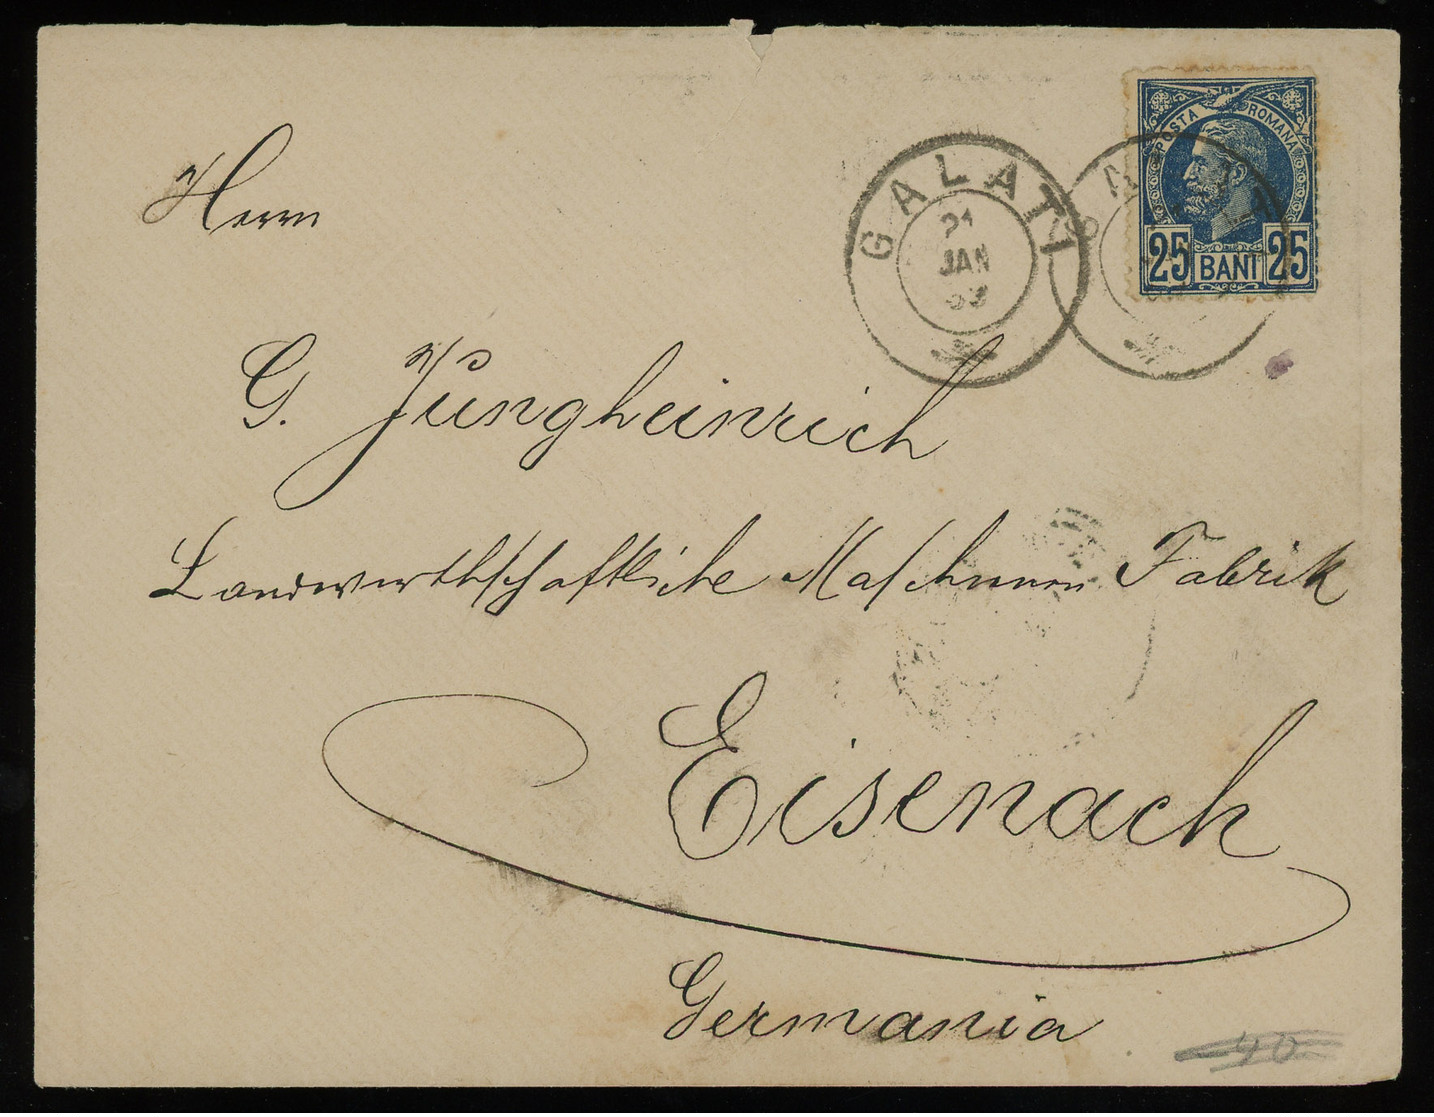 POSTA ROMANA
25 BANI 25
GALATI
21
JAN
Herrn
G. Jungheinrich
Landwirthschaftliche Maschinen Fabrik
Eisenach
Germania
40